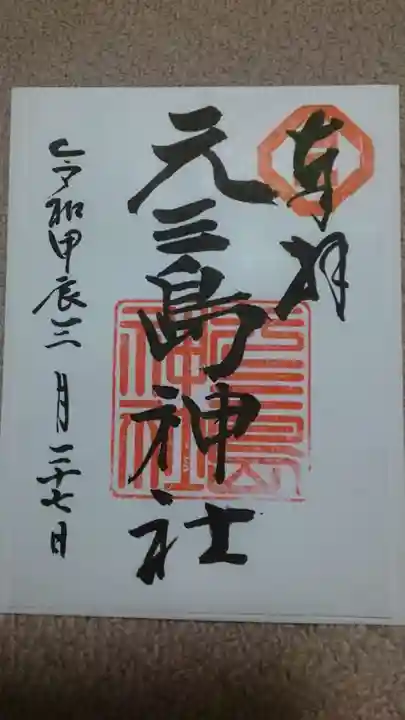 奉拝
元三島神社
令和甲辰三月二十七日
元三島
神社